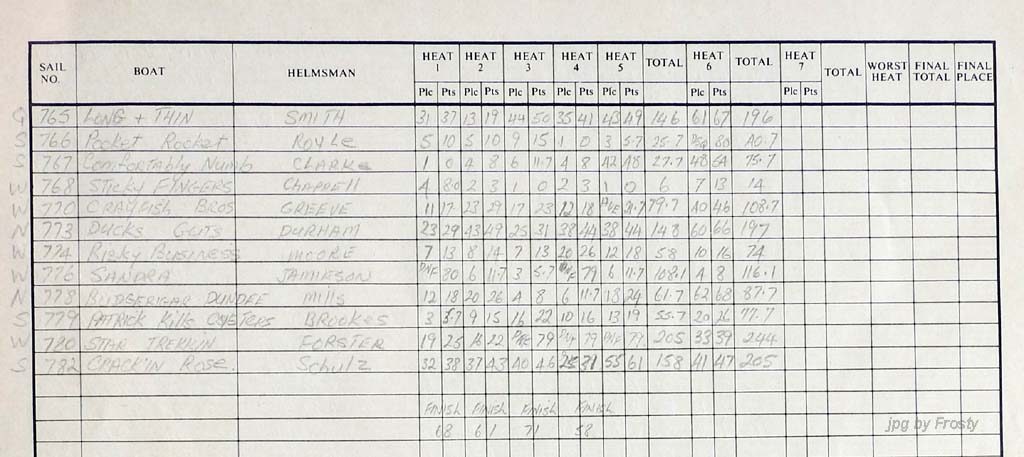 SAIL NO. BOAT HELMSMAN HEAT 1 HEAT 2 HEAT 3 HEAT 4 HEAT 5 TOTAL HEAT 6 TOTAL HEAT 7 TOTAL WORST HEAT FINAL TOTAL FINAL PLACE
Plc Pts Plc Pts Plc Pts Plc Pts Plc Pts Plc Pts Plc Pts
Q 765 LONG + THIN SMITH 31 37 13 19 44 50 35 41 43 49 146 61 67 196
S 766 Pocket Rocket ROYLE 5 10 5 10 9 15 1 0 3 5.7 25.7 80 40.7
S 767 Comfortably Numb CLARKE 1 0 4 8 6 11.7 4 8 42 48 27.7 48 54 75.7
W 768 STICKY FINGERS CHAPPELL 4 8.0 2 3 1 0 2 3 1 0 6 7 13 14
W 770 CRAYFISH BROS GREEVE 11 17 23 29 17 23 12 18 79.7 40 46 108.7
N 773 DUCKS GUTS DURHAM 23 29 43 49 25 31 38 44 38 44 148 60 66 197
W 774 RISKY BUSINESS MOORE 7 13 8 14 7 13 20 26 12 18 58 10 16 74
W 776 SANDRA JAMIESON DNF 80 6 11.7 3 5.7 79 6 11.7 108.1 4 8 116.1
N 778 BUDGERIGAR DUNDEE Mills 12 18 20 26 4 8 6 11.7 18 24 61.7 62 68 87.7
S 779 PATRICK Kills OYSTERS BROOKES 3 5.7 9 15 16 22 10 16 13 19 55.7 20 26 77.7
W 780 STAR TREKKIN FORSTER 19 25 16 22 79 79 79 205 33 39 244
S 782 CRACK'IN ROSE. Schulz 32 38 37 43 40 46 25 31 55 61 158 41 47 205
FINISH FINISH FINISH FINISH
68 61 71 58
jpg by Frosty